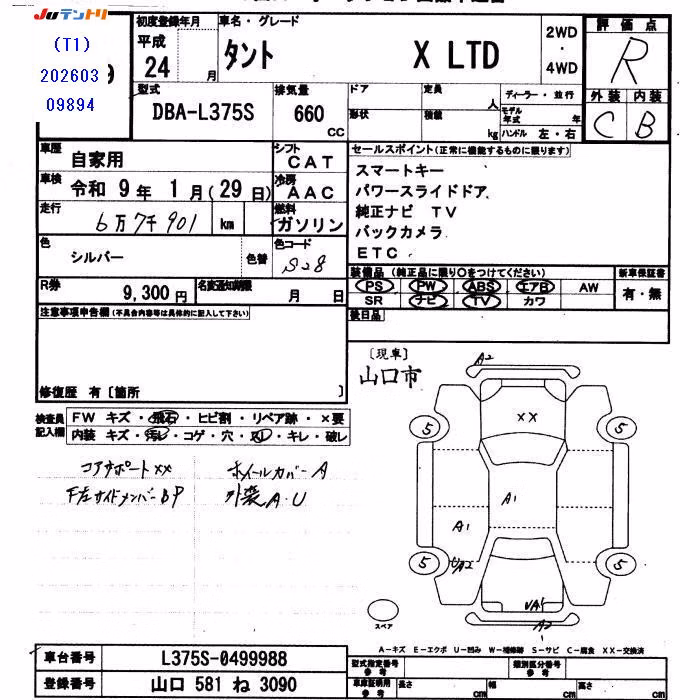 Juテントリ
(T1)
202603
09894
9
初度登録年月 車名・グレード
平成 24 月 タント X LTD 2WD ・ 4WD
評価点
R
外装 内装
C B
型式 排気量 ドア 定員 人 ディーラー・並行
DBA-L375S 660 CC 形状 積載 kg モデル年式 年
ハンドル 左・右
車歴 自家用 シフト CAT
車検 令和 9年 1月(29日) 冷房 AAC
走行 6万7千901 km 燃料 ガソリン
色 シルバー 色替 色コード S28
R券 9,300円 名変通知期限 月 日
セールスポイント(正常に機能するものに限ります)
スマートキー
パワースライドドア
純正ナビ TV
バックカメラ
ETC
装備品(純正品に限り○をつけてください) 新車保証書
PS PW ABS エアB AW 有・無
SR ナビ TV カワ
後日品
注意事項申告欄(不具合内容等は具体的に記入して下さい)
修復歴 有〔箇所 〕
検査員記入欄
FW キズ・飛石・ヒビ割・リペア跡・×要
内装 キズ・汚れ・コゲ・穴・スレ・キレ・破レ
コアサポートxx ホイールカバーA
F左サイドメンバーBP 外装A・U
〔現車〕
山口市
A2
XX
5 5
A1
A1
UA2
5 5
UA1
A2
スペア
A-キズ E-エクボ U-凹み W-補修跡 S-サビ C-腐食 XX-交換済
車台番号 L375S-0499988
登録番号 山口 581 ね 3090
型式指定番号 類別区分番号
車庫証明用 長さ cm 幅 cm 高さ cm
参考